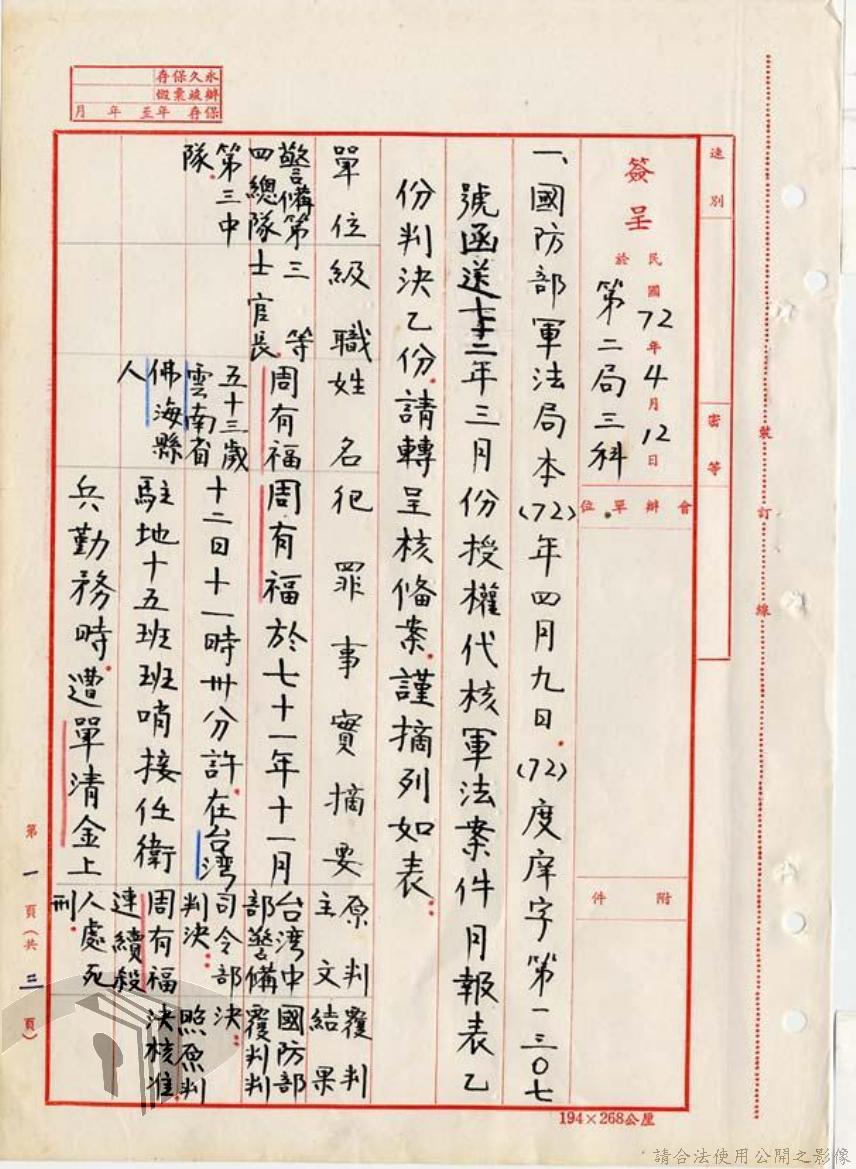 永久保存
辦竣彙燬
保存 年至 年 月
速別
密等
簽呈
民國72年4月12日
於第二局三科
會辦單位
附件
一、國防部軍法局本(72)年四月九日.(72)度庠字第一三○七
號函送七十二年三月份授權代核軍法案件月報表乙
份判決乙份.請轉呈核備案.謹摘列如表:
單位
級職
姓名
犯罪事實摘要
原判主文
覆判結果
警備第
四總隊
第三中
隊.
三等
士官長.
周有福
五十三歲
雲南省
佛海縣
人
周有福於七十一年十一月
十二日十一時卅分許.在台灣
駐地十五班班哨接任衛
兵勤務時.遭單清金上
台灣中
部警備
司令部
判決:
周有福
連續殺
人處死
刑.
國防部
覆判判
決:
照原判
決核准.
第一頁(共三頁)
裝訂線
194×268公厘
請合法使用公開之影像